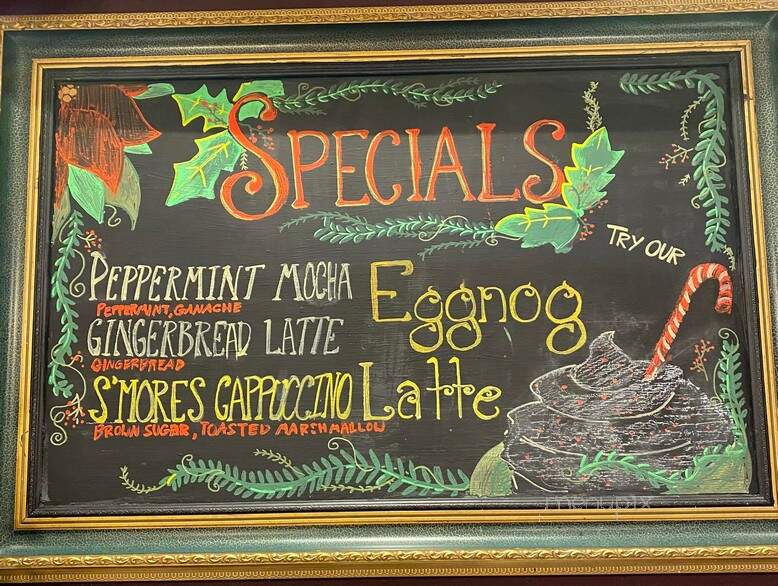 SPECIALS
TRY OUR
PEPPERMINT MOCHA
PEPPERMINT, GANACHE
GINGERBREAD LATTE
GINGERBREAD
S'MORES CAPPUCCINO
BROWN SUGAR, TOASTED MARSHMALLOW
Eggnog
Latte
menupix